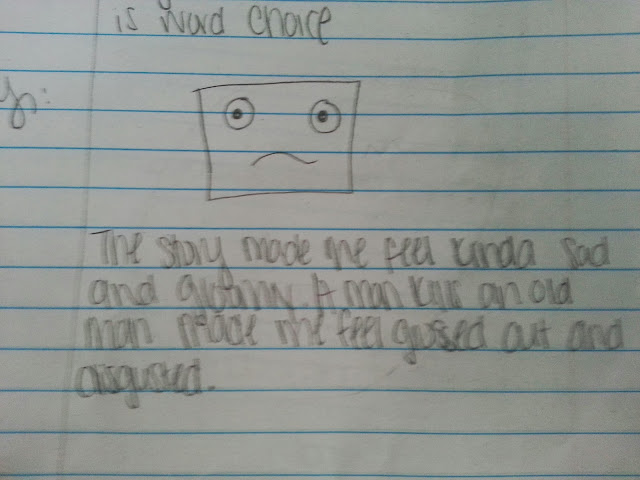 is word choice
The story made me feel kinda sad
and gloomy. A man kills an old
man made me feel grossed out and
disgusted.